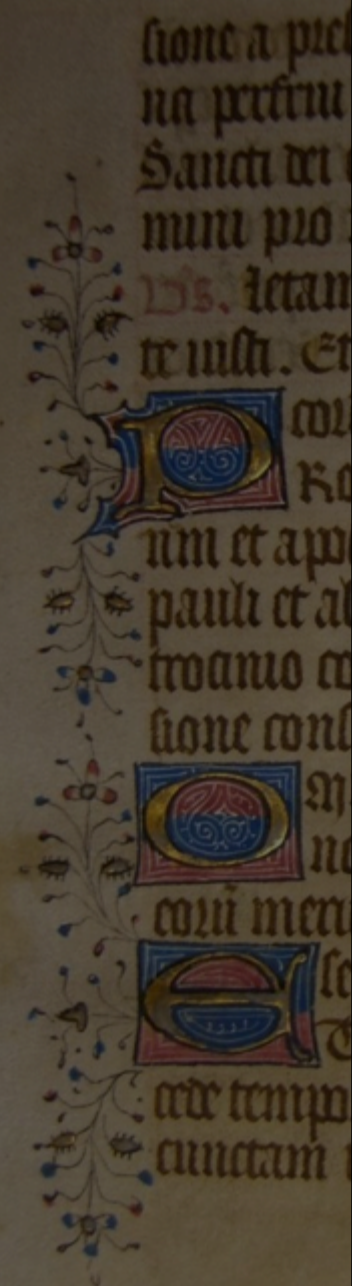 sione a pres
na perfrui
Sancti dei
mini pro
Vs. letam
te uisti. Et
P cor
Ro
um et apo
pauli et al
trocinio co
sione cons
O m
ne
coru meri
E t se
T
cede tempo
cunctam